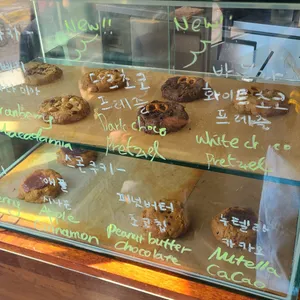 New!!
New
다크초코
프레즐
Dark choco
Pretzel
화이트초코
프레즐
White choco
Pretzel
Cranberry
macadamia
스콘쿠키
애플
시나몬
Apple
Cinnamon
피넛버터
초코칩
Peanut butter
chocolate
누텔라
카카오
Nutella
cacao